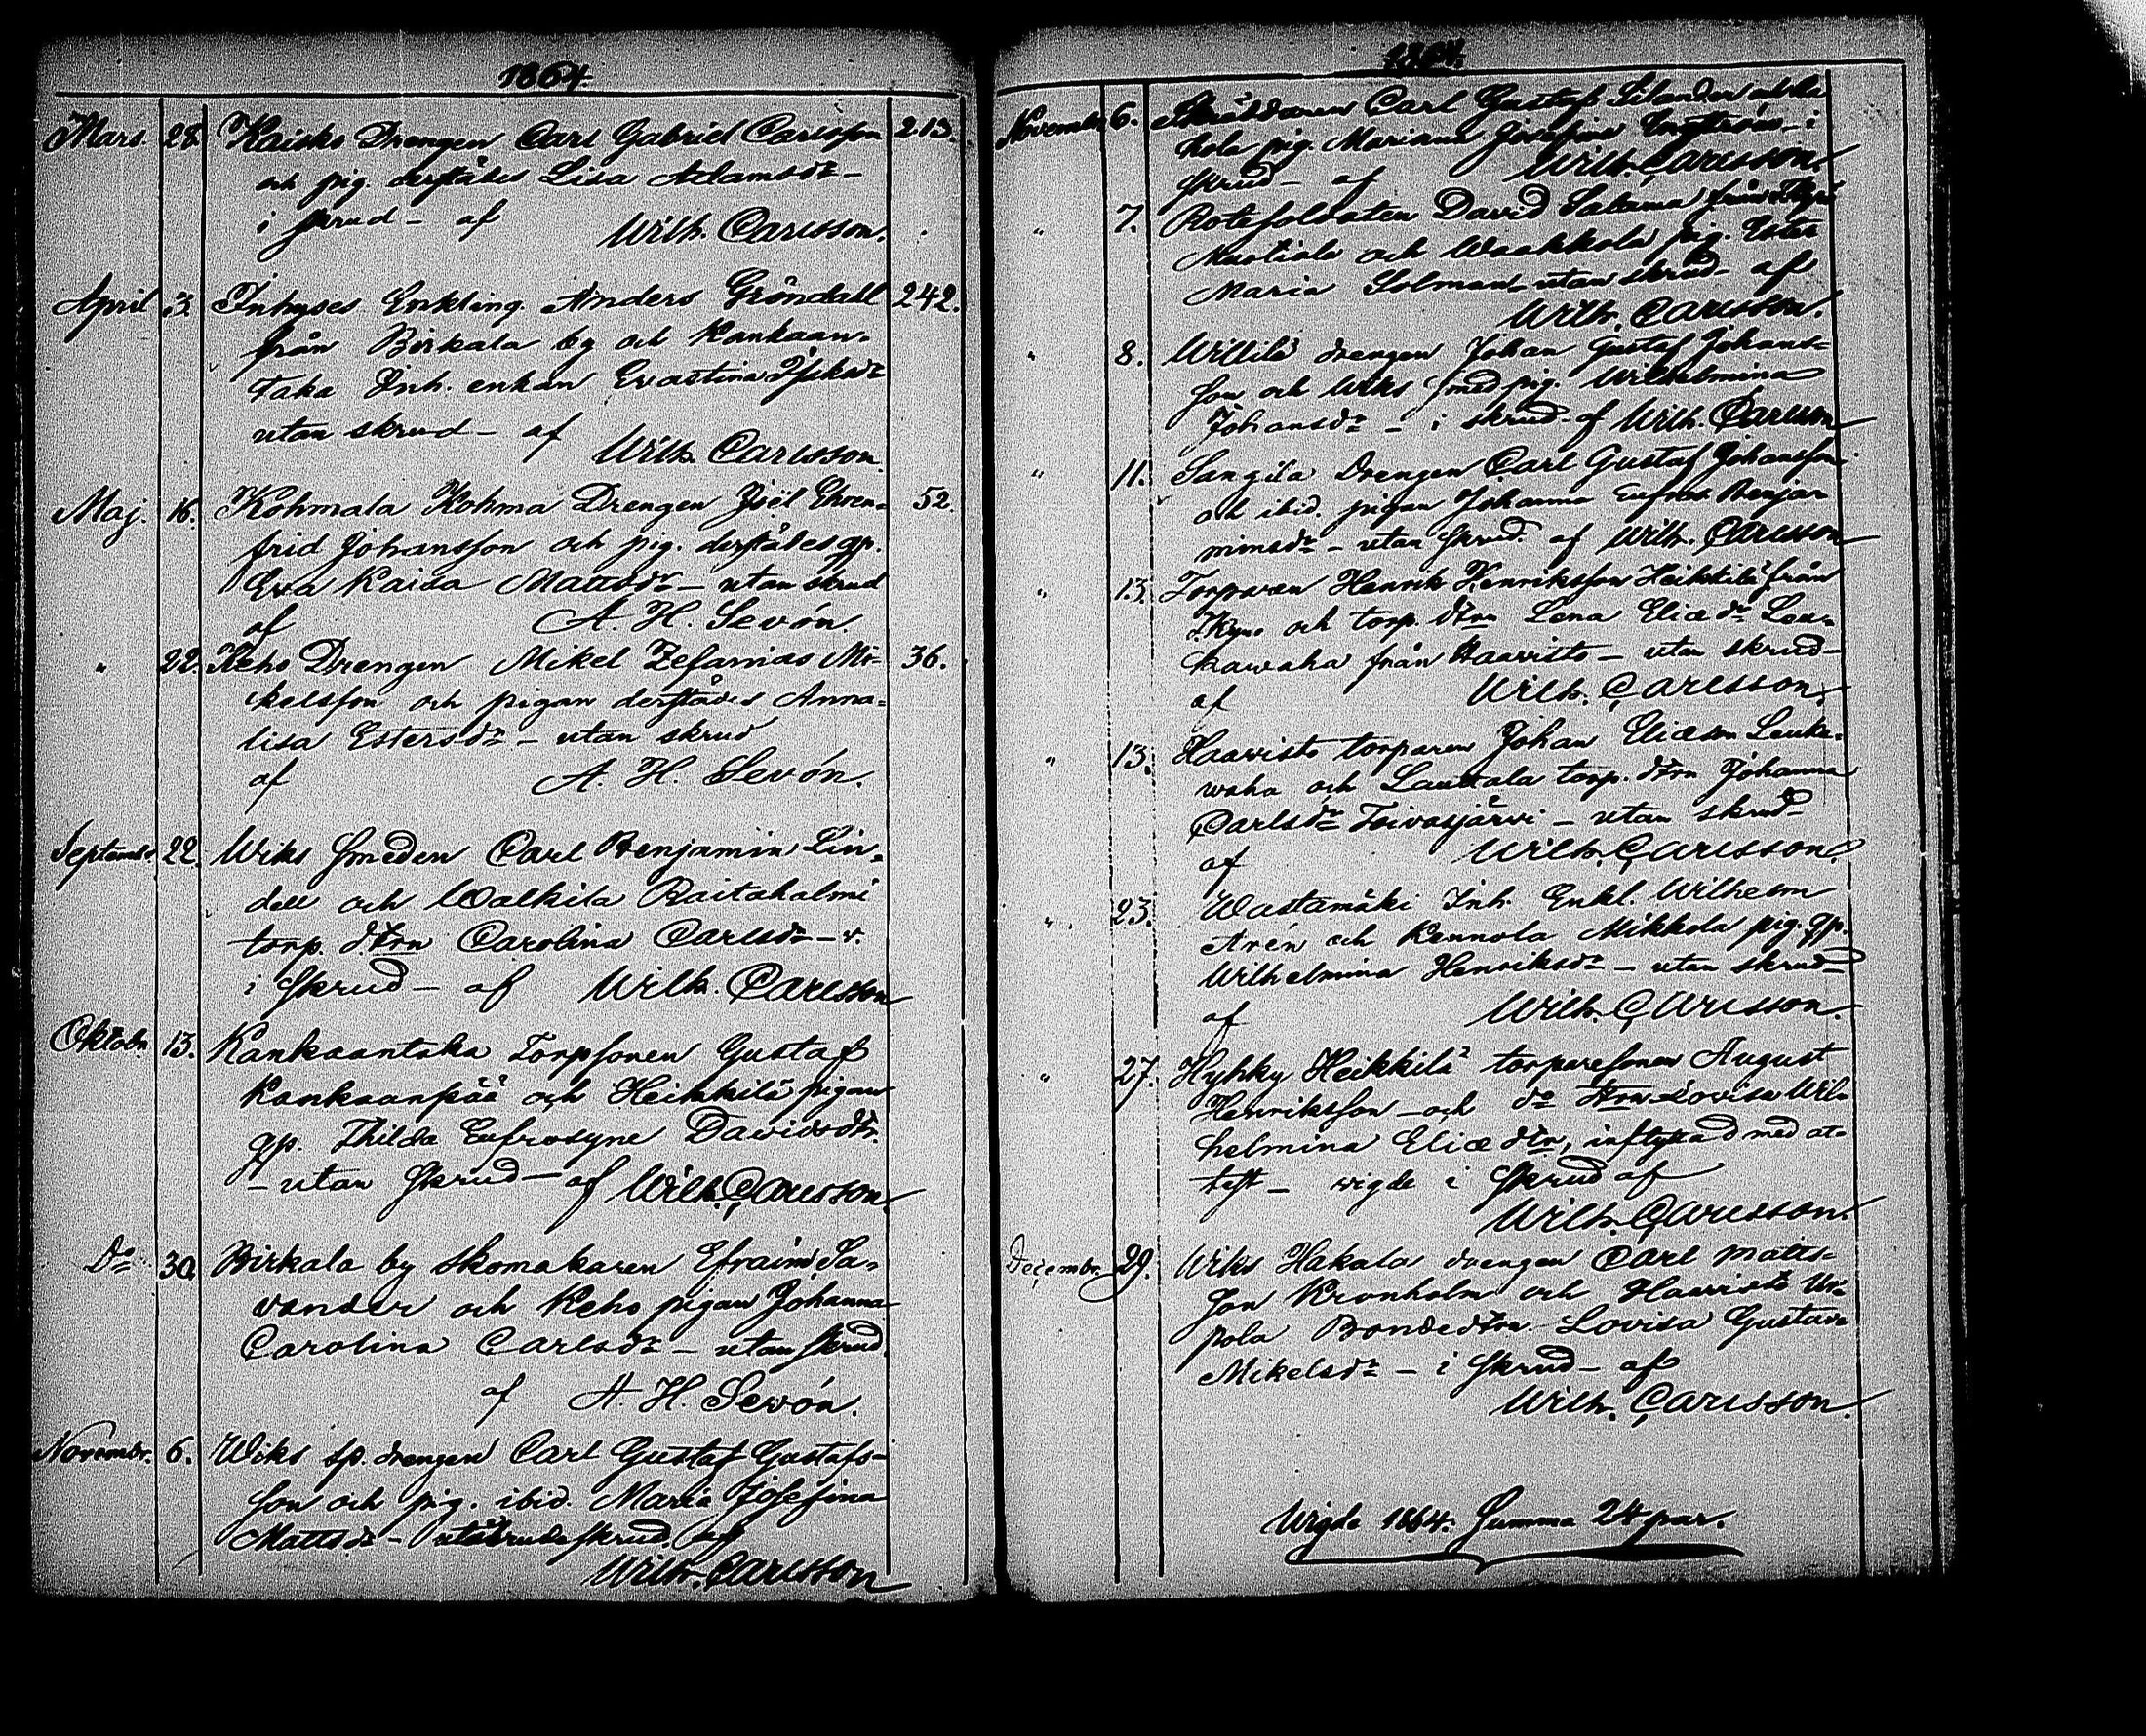 1864.
Mars. 28. Kaisko Drengen Carl Gabriel Carlsson 213.
och pig. derstädes Lisa Adamsdr –
i skrud – af Wilh. Carlsson.
April 3. Inhyses Enkling. Anders Gröndall 242.
från Birkala by och Kankaan-
taka Inh. enkan Evastina
utan skrud – af
Wilh. Carlsson.
Maj. 16. Kohmala Kohma Drengen Joël Ehren- 52.
frid Johansson och pig. derstädes gp.
Eva Kaisa Mattsdr – utan skrud
af A. H. Sevón.
" 22. Keho Drengen Mikel Zefanias Mi- 36.
kelsson och pigan derstädes Anna-
lisa Estersdr – utan skrud
af A. H. Sevón.
Septembr. 22. Wiks Smeden Carl Benjamin Lin-
dell och Walkila Raitahalmi
torp. dtrn Carolina Carlsdr – v.
i Skrud – af Wilh. Carlsson
Oktobr. 13. Kankaantaka Torpsonen Gustaf
Kankaanpää och Heikkilä pigan
gp. Thilda Eufrosyne Davidsdtr.
– utan Skrud – af Wilh. Carlsson.
Do 30. Birkala by skomakaren Efraim Sa-
vander och Keho pigan Johanna
Carolina Carlsdr – utan skrud.
af A. H. Sevón.
Novembr. 6. Wiks sp. drengen Carl Gustaf Gustafs-
son och pig. ibid. Maria Josefina
Mattsdr – skrud. af
Wilh. Carlsson
1864.
Novembr. 6. Carl Gustaf
pig. Mariana Josefina – i
skrud – af Wilh. Carlsson.
" 7. Rotesoldaten David Salama från
och Waakkola pig. Ester
Maria – utan skrud – af
Wilh. Carlsson.
" 8. Willilä drengen Johan Gustaf Johans-
son och Wiks smed pig. Wilhelmina
Johansdr – i skrud – af Wilh. Carlsson
" 11. Sangila Drengen Carl Gustaf Johansson
och ibid. pigan Johanna Eufros. Benja-
minsdr – utan skrud. af Wilh. Carlsson
" 13. Torparen Henrik Henriksson Heikkilä från
och torp. dtrn Lena Eliædr Leu-
kawaha från Haavisto – utan skrud –
af Wilh. Carlsson.
" 13. Haavisto torparen Johan Eliæson Leuka-
waha och Lauttala torp. dtrn Johanna
Carlsdr Toivosjärvi – utan skrud –
af Wilh. Carlsson.
" 23. Wastamäki Inh. Enkl. Wilhelm
Arén och Kennola Mikkola pig. gp.
Wilhelmina Henriksdr – utan skrud –
af Wilh. Carlsson.
" 27. Hyhky Heikkilä torparesonen August
Henriksson – och do dtrn Lovisa Wil-
helmina Eliædtr, inflyttad med at-
test – vigde i Skrud af
Wilh. Carlsson.
Decembr. 29. Wiks Hakala drengen Carl Matts-
son Kronholm och Haavisto Ur-
pola Bondedtrn. Lovisa Gustava
Mikelsdr – i Skrud – af
Wilh. Carlsson.
Wigde 1864. Summa 24 par.